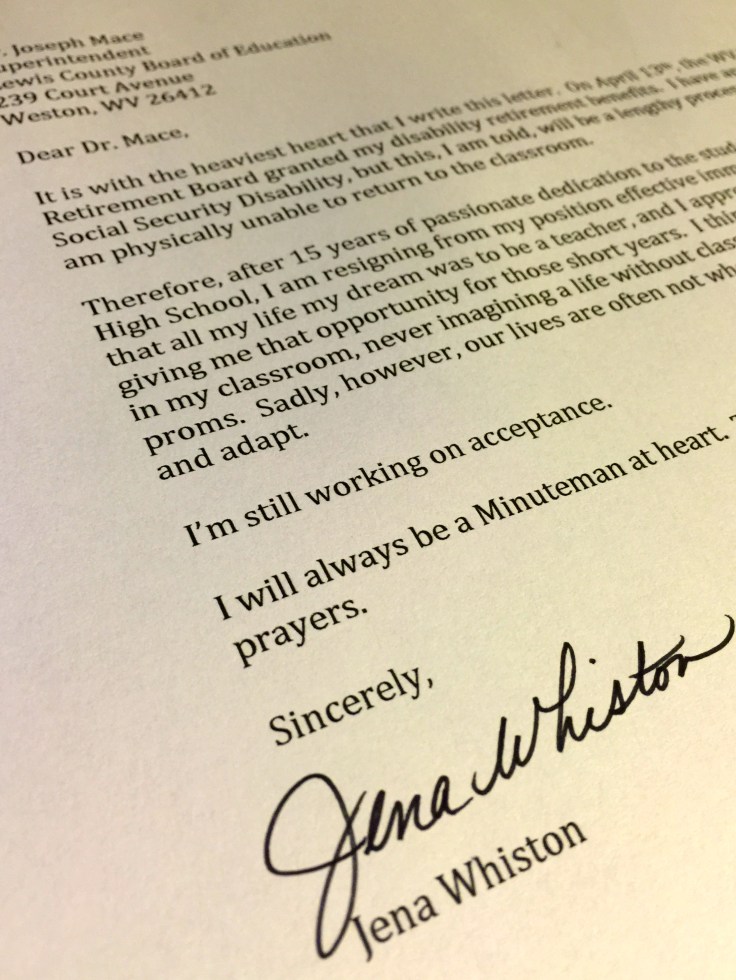 . Joseph Mace
uperintendent
ewis County Board of Education
239 Court Avenue
Weston, WV 26412
Dear Dr. Mace,
It is with the heaviest heart that I write this letter. On April 13th, the WV
Retirement Board granted my disability retirement benefits. I have an
Social Security Disability, but this, I am told, will be a lengthy proce
am physically unable to return to the classroom.
Therefore, after 15 years of passionate dedication to the stud
High School, I am resigning from my position effective imm
that all my life my dream was to be a teacher, and I appre
giving me that opportunity for those short years. I thin
in my classroom, never imagining a life without class
proms. Sadly, however, our lives are often not wh
and adapt.
I'm still working on acceptance.
I will always be a Minuteman at heart. T
prayers.
Sincerely,
Jena Whiston
Jena Whiston